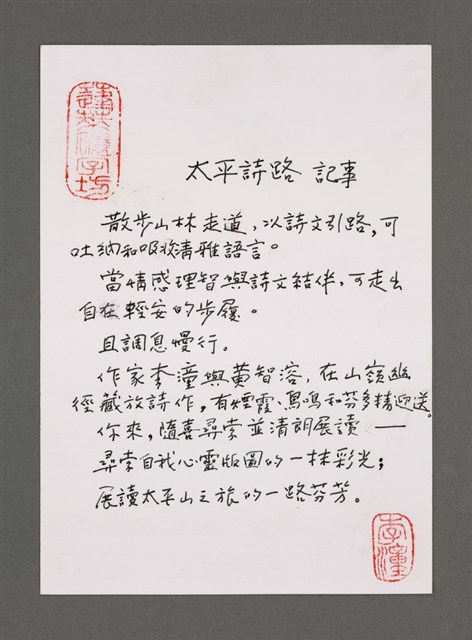 太平詩路 記事
散步山林走道，以詩文引路，可
吐納和吸收清雅語言。
當情感理智與詩文結伴，可走出
自在輕安的步履。
且調息慢行。
作家李潼與黃智溶，在山嶺幽
徑藏放詩作，有煙霞、鳥鳴和芬多精迎送。
你來，隨喜尋索並清朗展讀——
尋索自我心靈版圖的一抹彩光；
展讀太平山之旅的一路芬芳。
李潼